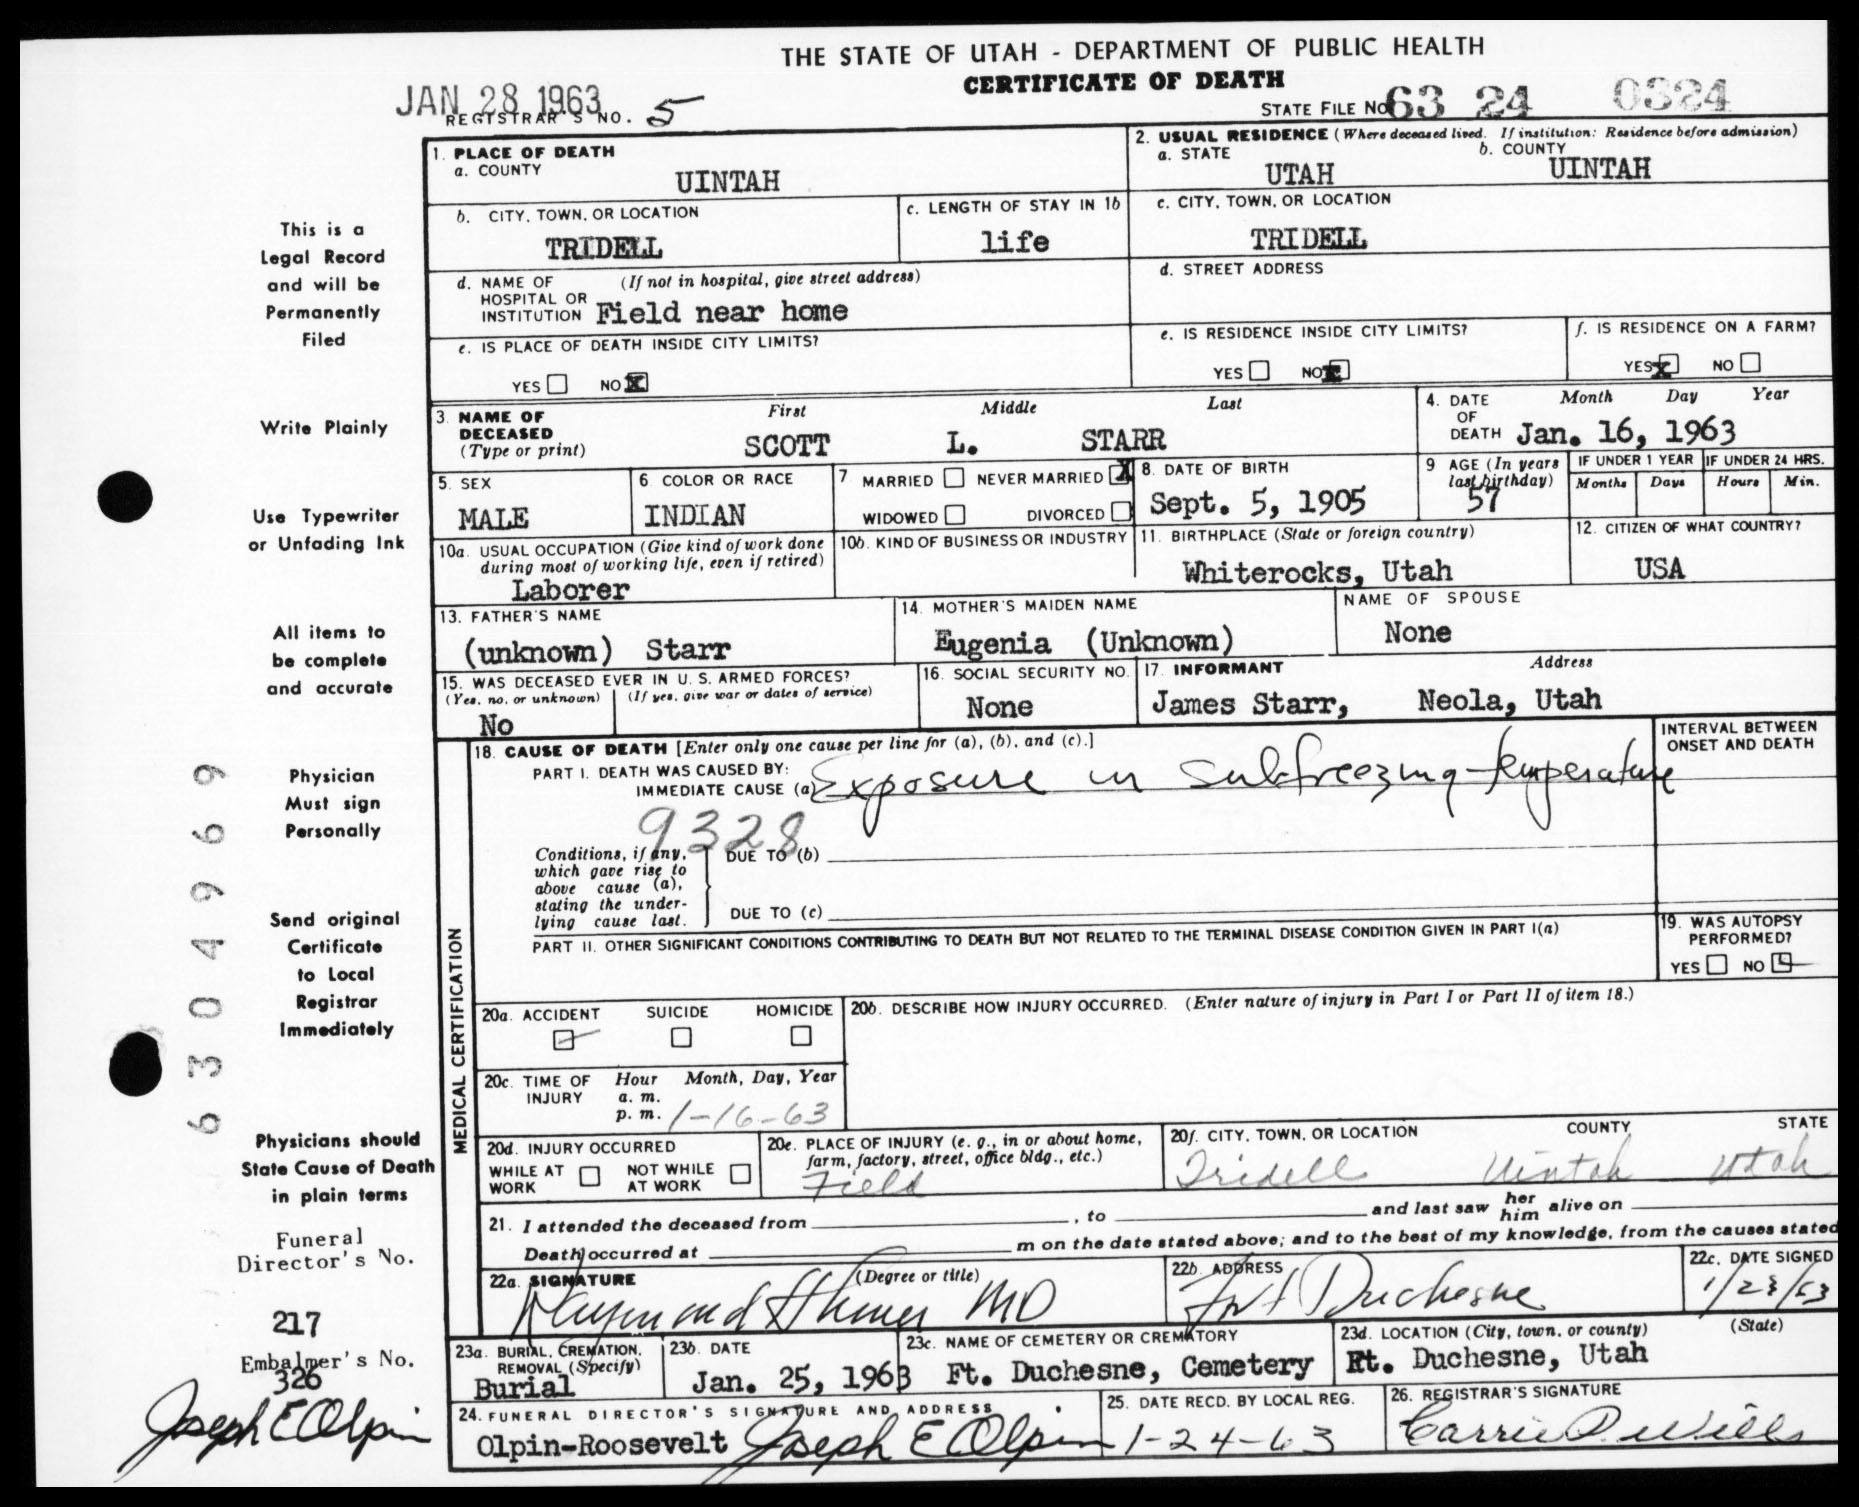 THE STATE OF UTAH - DEPARTMENT OF PUBLIC HEALTH
CERTIFICATE OF DEATH
JAN 28 1963
REGISTRAR'S NO. 5
STATE FILE NO. 63 24 0324
1. PLACE OF DEATH
a. COUNTY
UINTAH
2. USUAL RESIDENCE (Where deceased lived. If institution: Residence before admission)
a. STATE
UTAH
b. COUNTY
UINTAH
b. CITY, TOWN, OR LOCATION
TRIDELL
c. LENGTH OF STAY IN 1b
life
c. CITY, TOWN, OR LOCATION
TRIDELL
d. NAME OF HOSPITAL OR INSTITUTION
(If not in hospital, give street address)
Field near home
d. STREET ADDRESS
e. IS PLACE OF DEATH INSIDE CITY LIMITS?
YES NO X
e. IS RESIDENCE INSIDE CITY LIMITS?
YES NO X
f. IS RESIDENCE ON A FARM?
YES X NO
3. NAME OF DECEASED
(Type or print)
First Middle Last
SCOTT L. STARR
4. DATE OF DEATH
Month Day Year
Jan. 16, 1963
5. SEX
MALE
6. COLOR OR RACE
INDIAN
7. MARRIED NEVER MARRIED X
WIDOWED DIVORCED
8. DATE OF BIRTH
Sept. 5, 1905
9 AGE (In years last birthday)
57
IF UNDER 1 YEAR
Months Days
IF UNDER 24 HRS.
Hours Min.
10a. USUAL OCCUPATION (Give kind of work done during most of working life, even if retired)
Laborer
10b. KIND OF BUSINESS OR INDUSTRY
11. BIRTHPLACE (State or foreign country)
Whiterocks, Utah
12. CITIZEN OF WHAT COUNTRY?
USA
13. FATHER'S NAME
(unknown) Starr
14. MOTHER'S MAIDEN NAME
Eugenia (Unknown)
NAME OF SPOUSE
None
15. WAS DECEASED EVER IN U. S. ARMED FORCES?
(Yes, no, or unknown) (If yes, give war or dates of service)
No
16. SOCIAL SECURITY NO.
None
17. INFORMANT Address
James Starr, Neola, Utah
MEDICAL CERTIFICATION
18. CAUSE OF DEATH [Enter only one cause per line for (a), (b), and (c).]
INTERVAL BETWEEN ONSET AND DEATH
PART I. DEATH WAS CAUSED BY:
IMMEDIATE CAUSE (a) Exposure in subfreezing temperature
9328
Conditions, if any, which gave rise to above cause (a), stating the underlying cause last.
DUE TO (b)
DUE TO (c)
PART II. OTHER SIGNIFICANT CONDITIONS CONTRIBUTING TO DEATH BUT NOT RELATED TO THE TERMINAL DISEASE CONDITION GIVEN IN PART I(a)
19. WAS AUTOPSY PERFORMED?
YES NO
20a. ACCIDENT SUICIDE HOMICIDE
20b. DESCRIBE HOW INJURY OCCURRED. (Enter nature of injury in Part I or Part II of item 18.)
20c. TIME OF INJURY
Hour Month, Day, Year
a. m.
p. m. 1-16-63
20d. INJURY OCCURRED
WHILE AT WORK NOT WHILE AT WORK
20e. PLACE OF INJURY (e. g., in or about home, farm, factory, street, office bldg., etc.)
Field
20f. CITY, TOWN, OR LOCATION COUNTY STATE
Tridell Uintah Utah
21. I attended the deceased from , to and last saw her him alive on
Death occurred at m on the date stated above; and to the best of my knowledge, from the causes stated
22a. SIGNATURE (Degree or title)
Raymond MD
22b. ADDRESS
Fort Duchesne
22c. DATE SIGNED
1/23/63
23a. BURIAL, CREMATION, REMOVAL (Specify)
Burial
23b. DATE
Jan. 25, 1963
23c. NAME OF CEMETERY OR CREMATORY
Ft. Duchesne, Cemetery
23d. LOCATION (City, town, or county) (State)
Ft. Duchesne, Utah
24. FUNERAL DIRECTOR'S SIGNATURE AND ADDRESS
Olpin-Roosevelt Joseph E Olpin
25. DATE RECD. BY LOCAL REG.
1-24-63
26. REGISTRAR'S SIGNATURE
Carrie
This is a
Legal Record
and will be
Permanently
Filed
Write Plainly
Use Typewriter
or Unfading Ink
All items to
be complete
and accurate
Physician
Must sign
Personally
Send original
Certificate
to Local
Registrar
Immediately
Physicians should
State Cause of Death
in plain terms
Funeral
Director's No.
217
Embalmer's No.
326
Joseph E Olpin
6304969